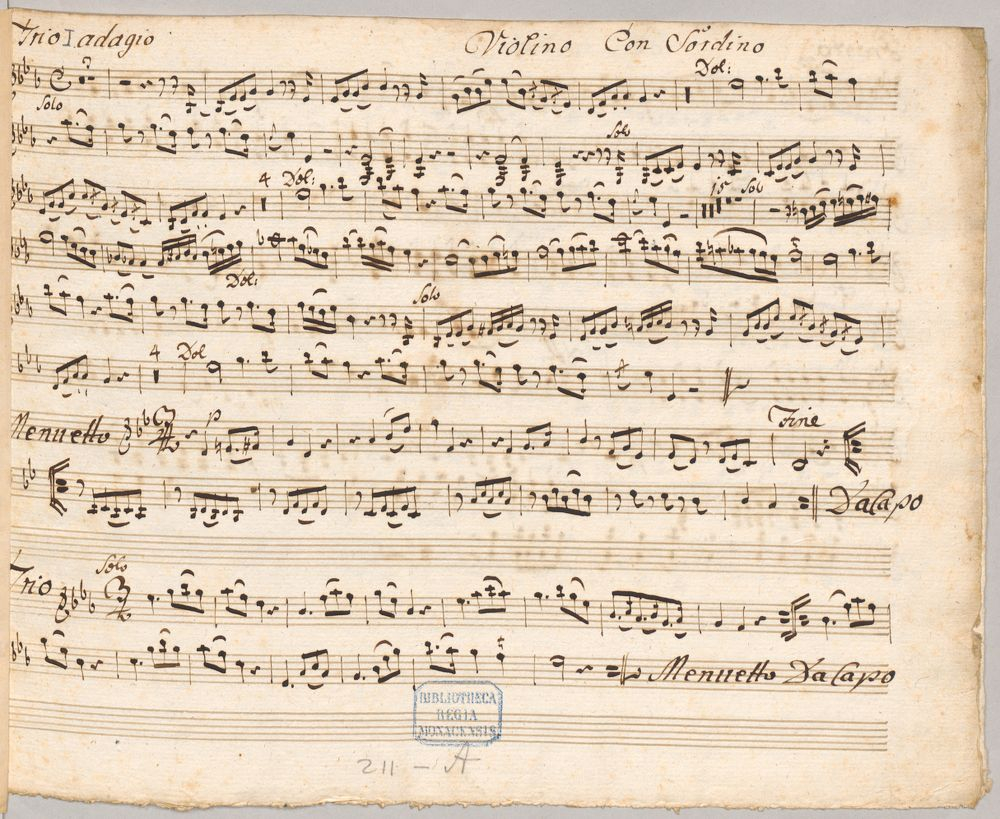 Trio I adagio Violino Con Sordino
Solo Dol:
Solo
4 Dol: 15 Solo
Dol: Solo
4 Dol
Menuetto 3/4 p Fine
DaCapo
Trio Solo 3/4
Menuetto DaCapo
BIBLIOTHECA
REGIA
MONACENSIS
211 - A